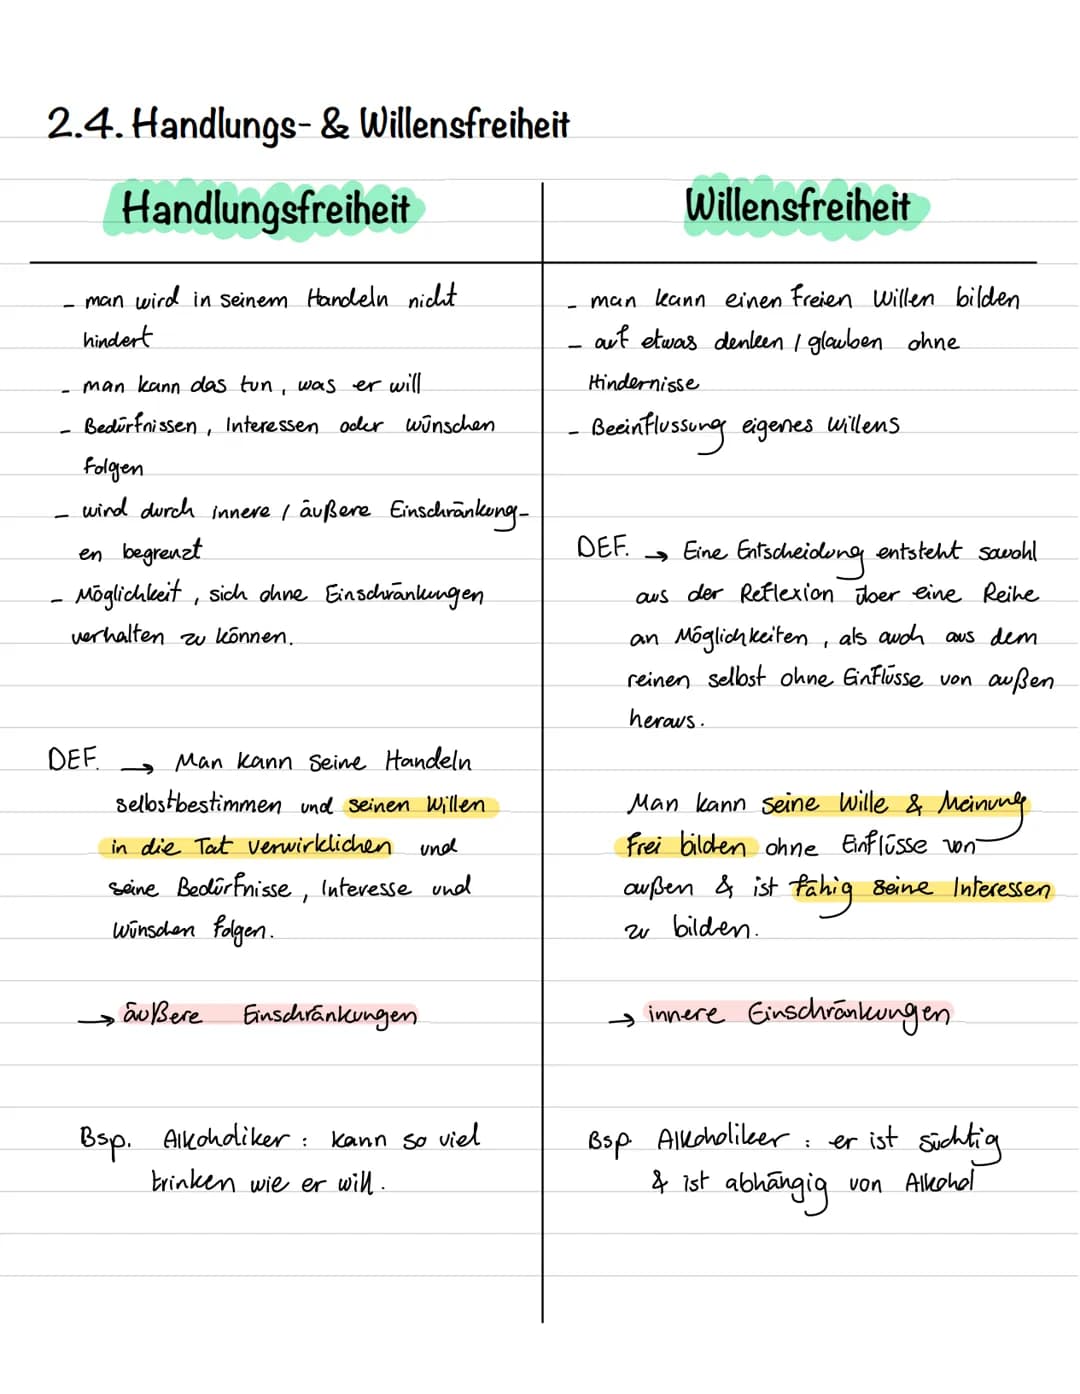 2.4. Handlungs- & Willensfreiheit
Handlungsfreiheit
- man wird in seinem Handeln nicht
hindert
- man kann das tun, was er will
- Bedürfnissen, Interessen oder wünschen
folgen
- wird durch innere / äußere Einschränkung-
en begrenzt
- Möglichkeit, sich ohne Einschränkungen
verhalten zu können.
DEF. → Man kann seine Handeln
selbstbestimmen und seinen Willen
in die Tat verwirklichen und
seine Bedürfnisse, Interesse und
Wünschen folgen.
→ äußere Einschränkungen
Bsp. Alkoholiker : kann so viel
trinken wie er will.
Willensfreiheit
- man kann einen freien Willen bilden
- auf etwas denken / glauben ohne
Hindernisse
- Beeinflussung eigenes Willens
DEF. → Eine Entscheidung entsteht sowohl
aus der Reflexion über eine Reihe
an Möglichkeiten, als auch aus dem
reinen selbst ohne Einflüsse von außen
heraus.
Man kann seine Wille & Meinung
frei bilden ohne Einflüsse von
außen & ist fähig seine Interessen
zu bilden.
→ innere Einschränkungen
Bsp Alkoholiker : er ist süchtig
& ist abhängig von Alkohol